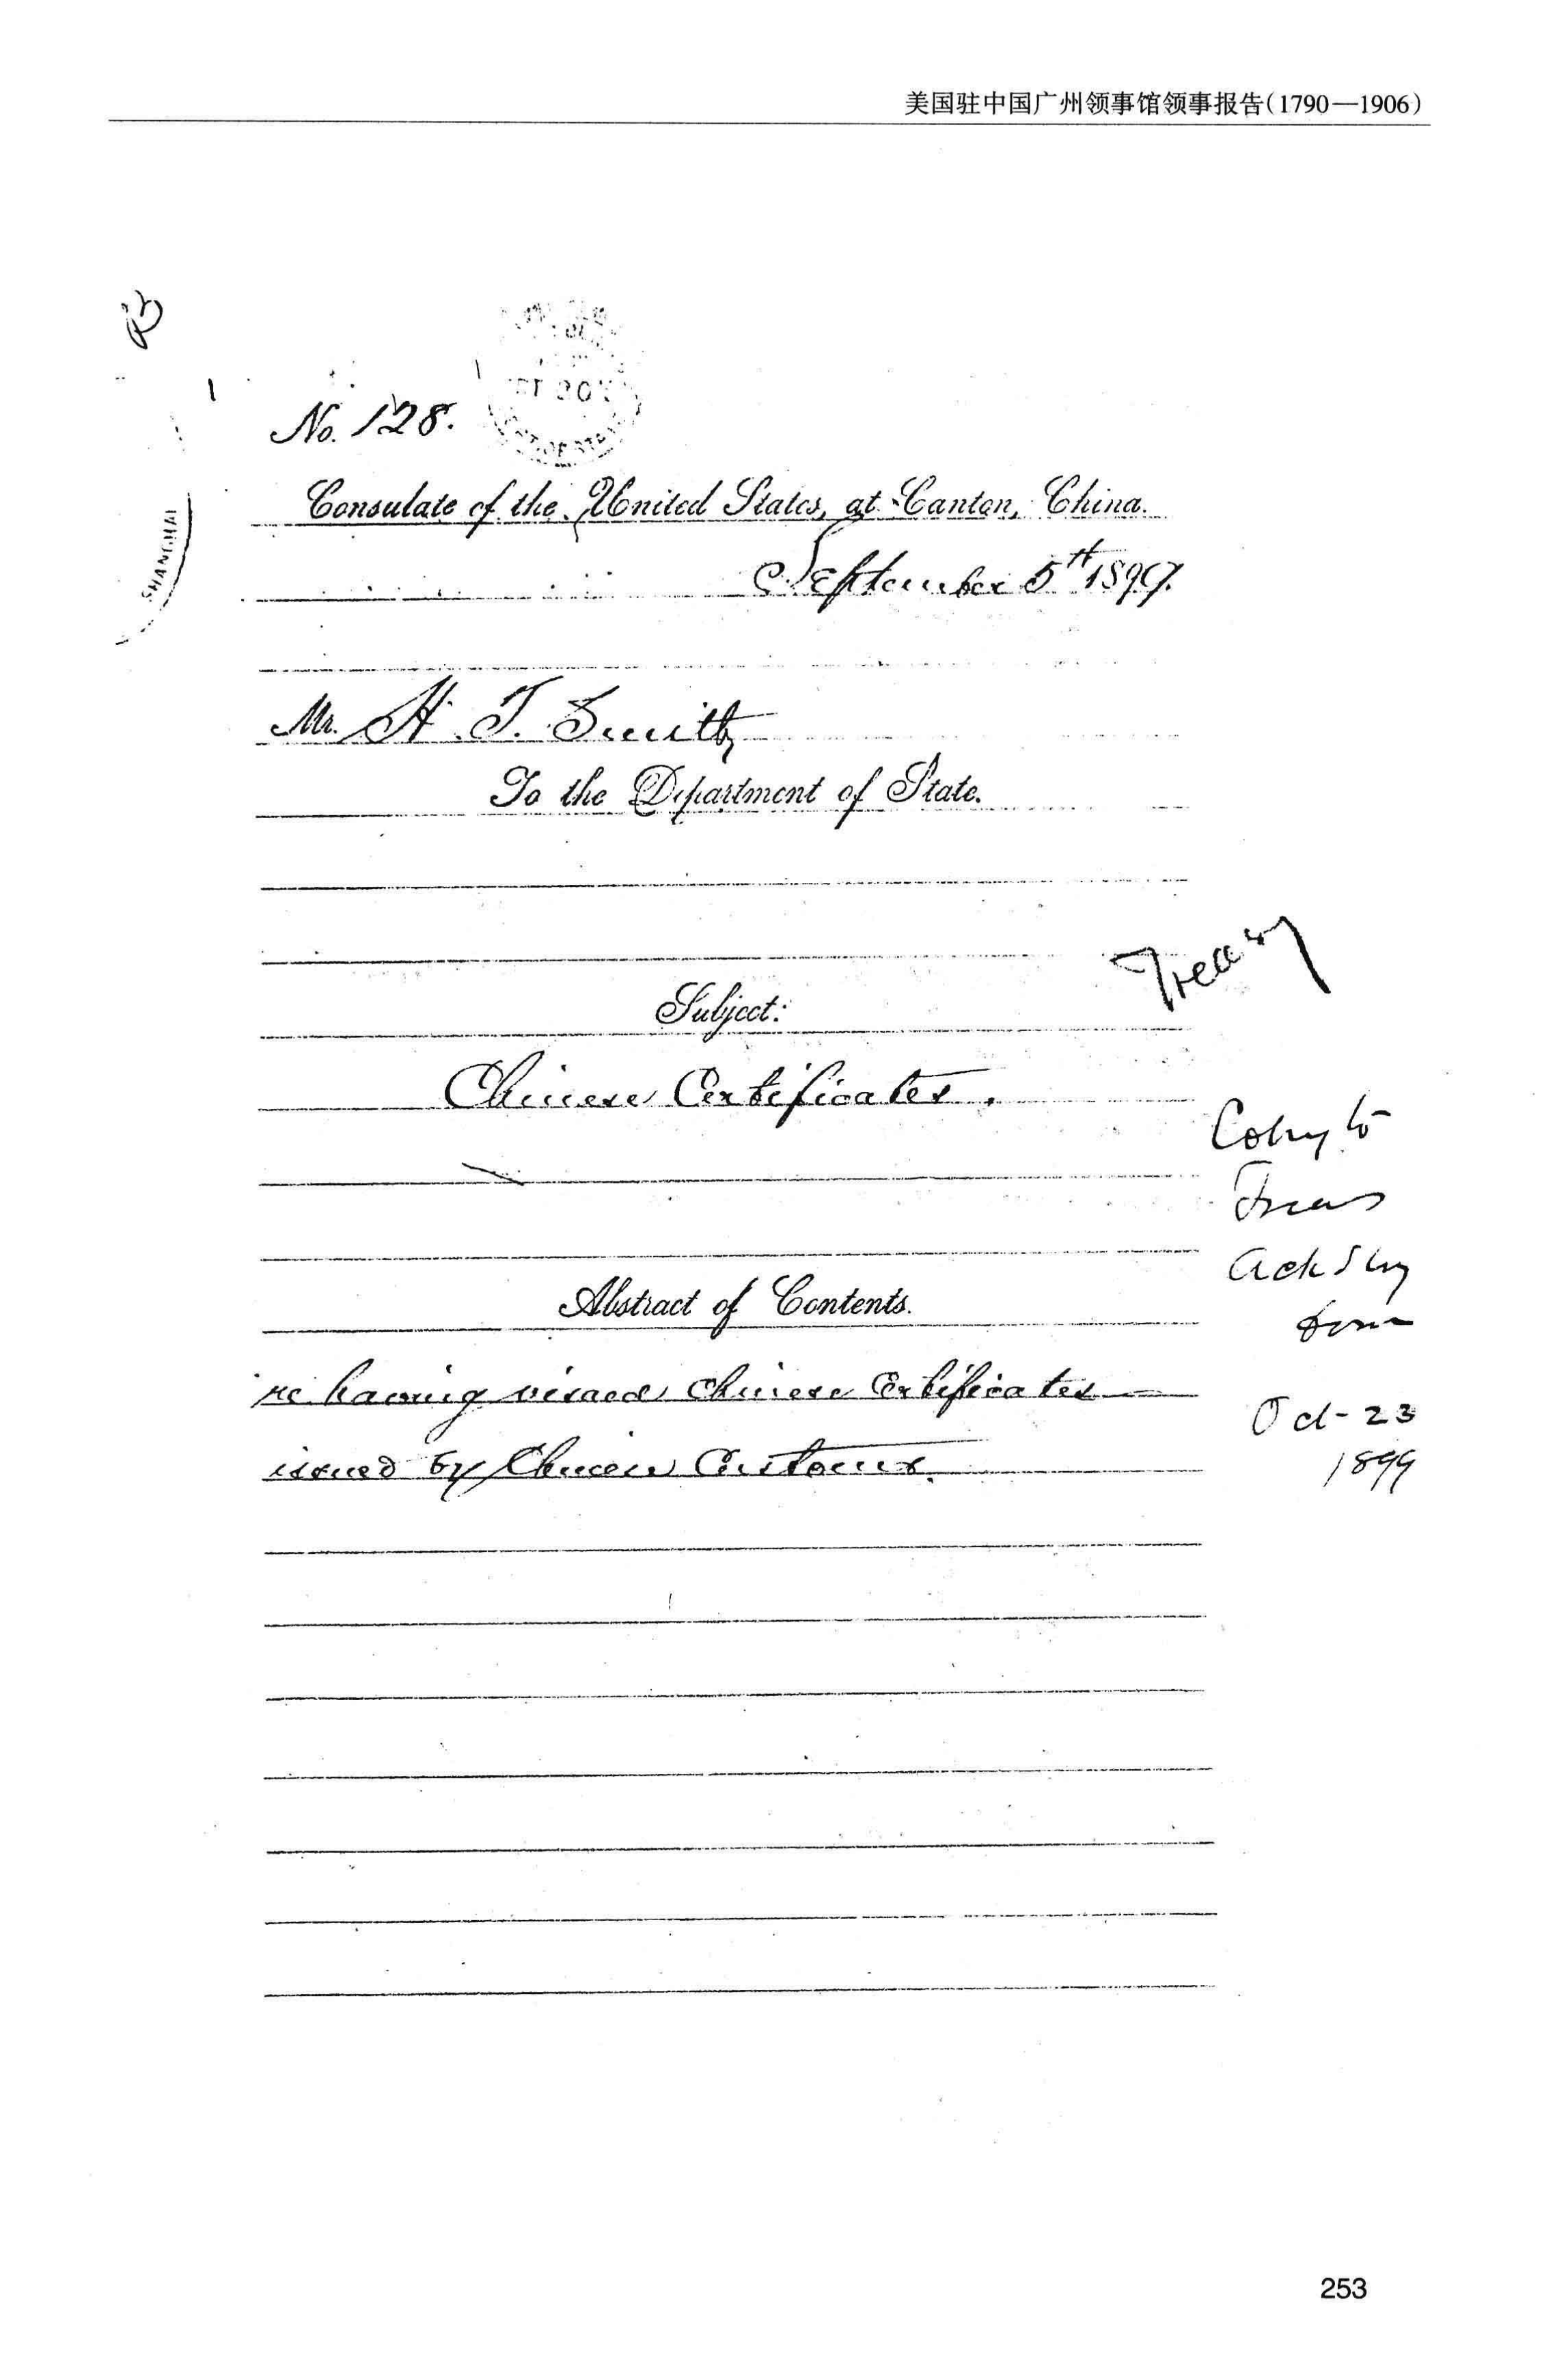 美国驻中国广州领事馆领事报告(1790—1906)
No. 128.
Consulate of the United States, at Canton, China.
September 5th 1899.
Mr. H. T. Smith
To the Department of State.
Treasy
Subject:
Chinese Certificates.
Copy to
Treas
Abstract of Contents.
re having visaed Chinese Certificates
issued by Chinese Customs.
Oct-23
1899
SHANGHAI
253